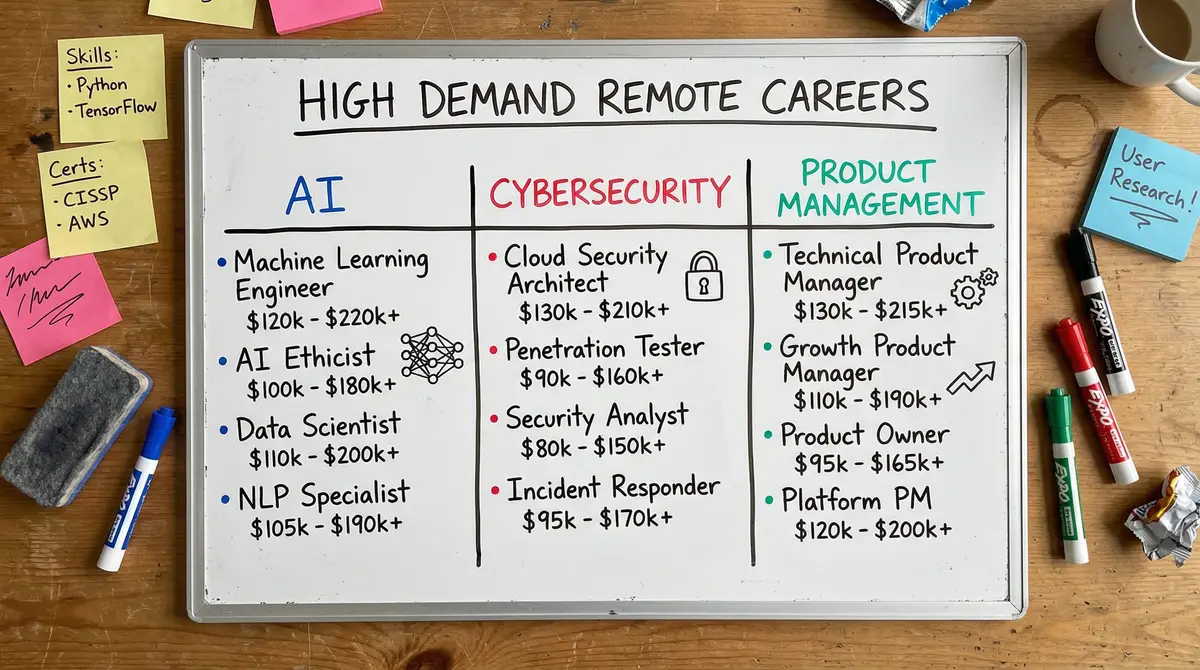 HIGH DEMAND REMOTE CAREERS
AI
Machine Learning
Engineer
$120k - $220k+
AI Ethicist
$100k - $180k+
Data Scientist
$110k - $200k+
NLP Specialist
$105k - $190k+
CYBERSECURITY
Cloud Security
Architect
$130k - $210k+
Penetration Tester
$90k - $160k+
Security Analyst
$80k - $150k+
Incident Responder
$95k - $170k+
PRODUCT
MANAGEMENT
Technical Product
Manager
$130k - $215k+
Growth Product
Manager
$110k - $190k+
Product Owner
$95k - $165k+
Platform PM
$120k - $200k+
Skills:
· Python
· TensorFlow
Certs:
· CISSP
· AWS
User
Research!
EXPO
EXPO
EXPO
EXPO